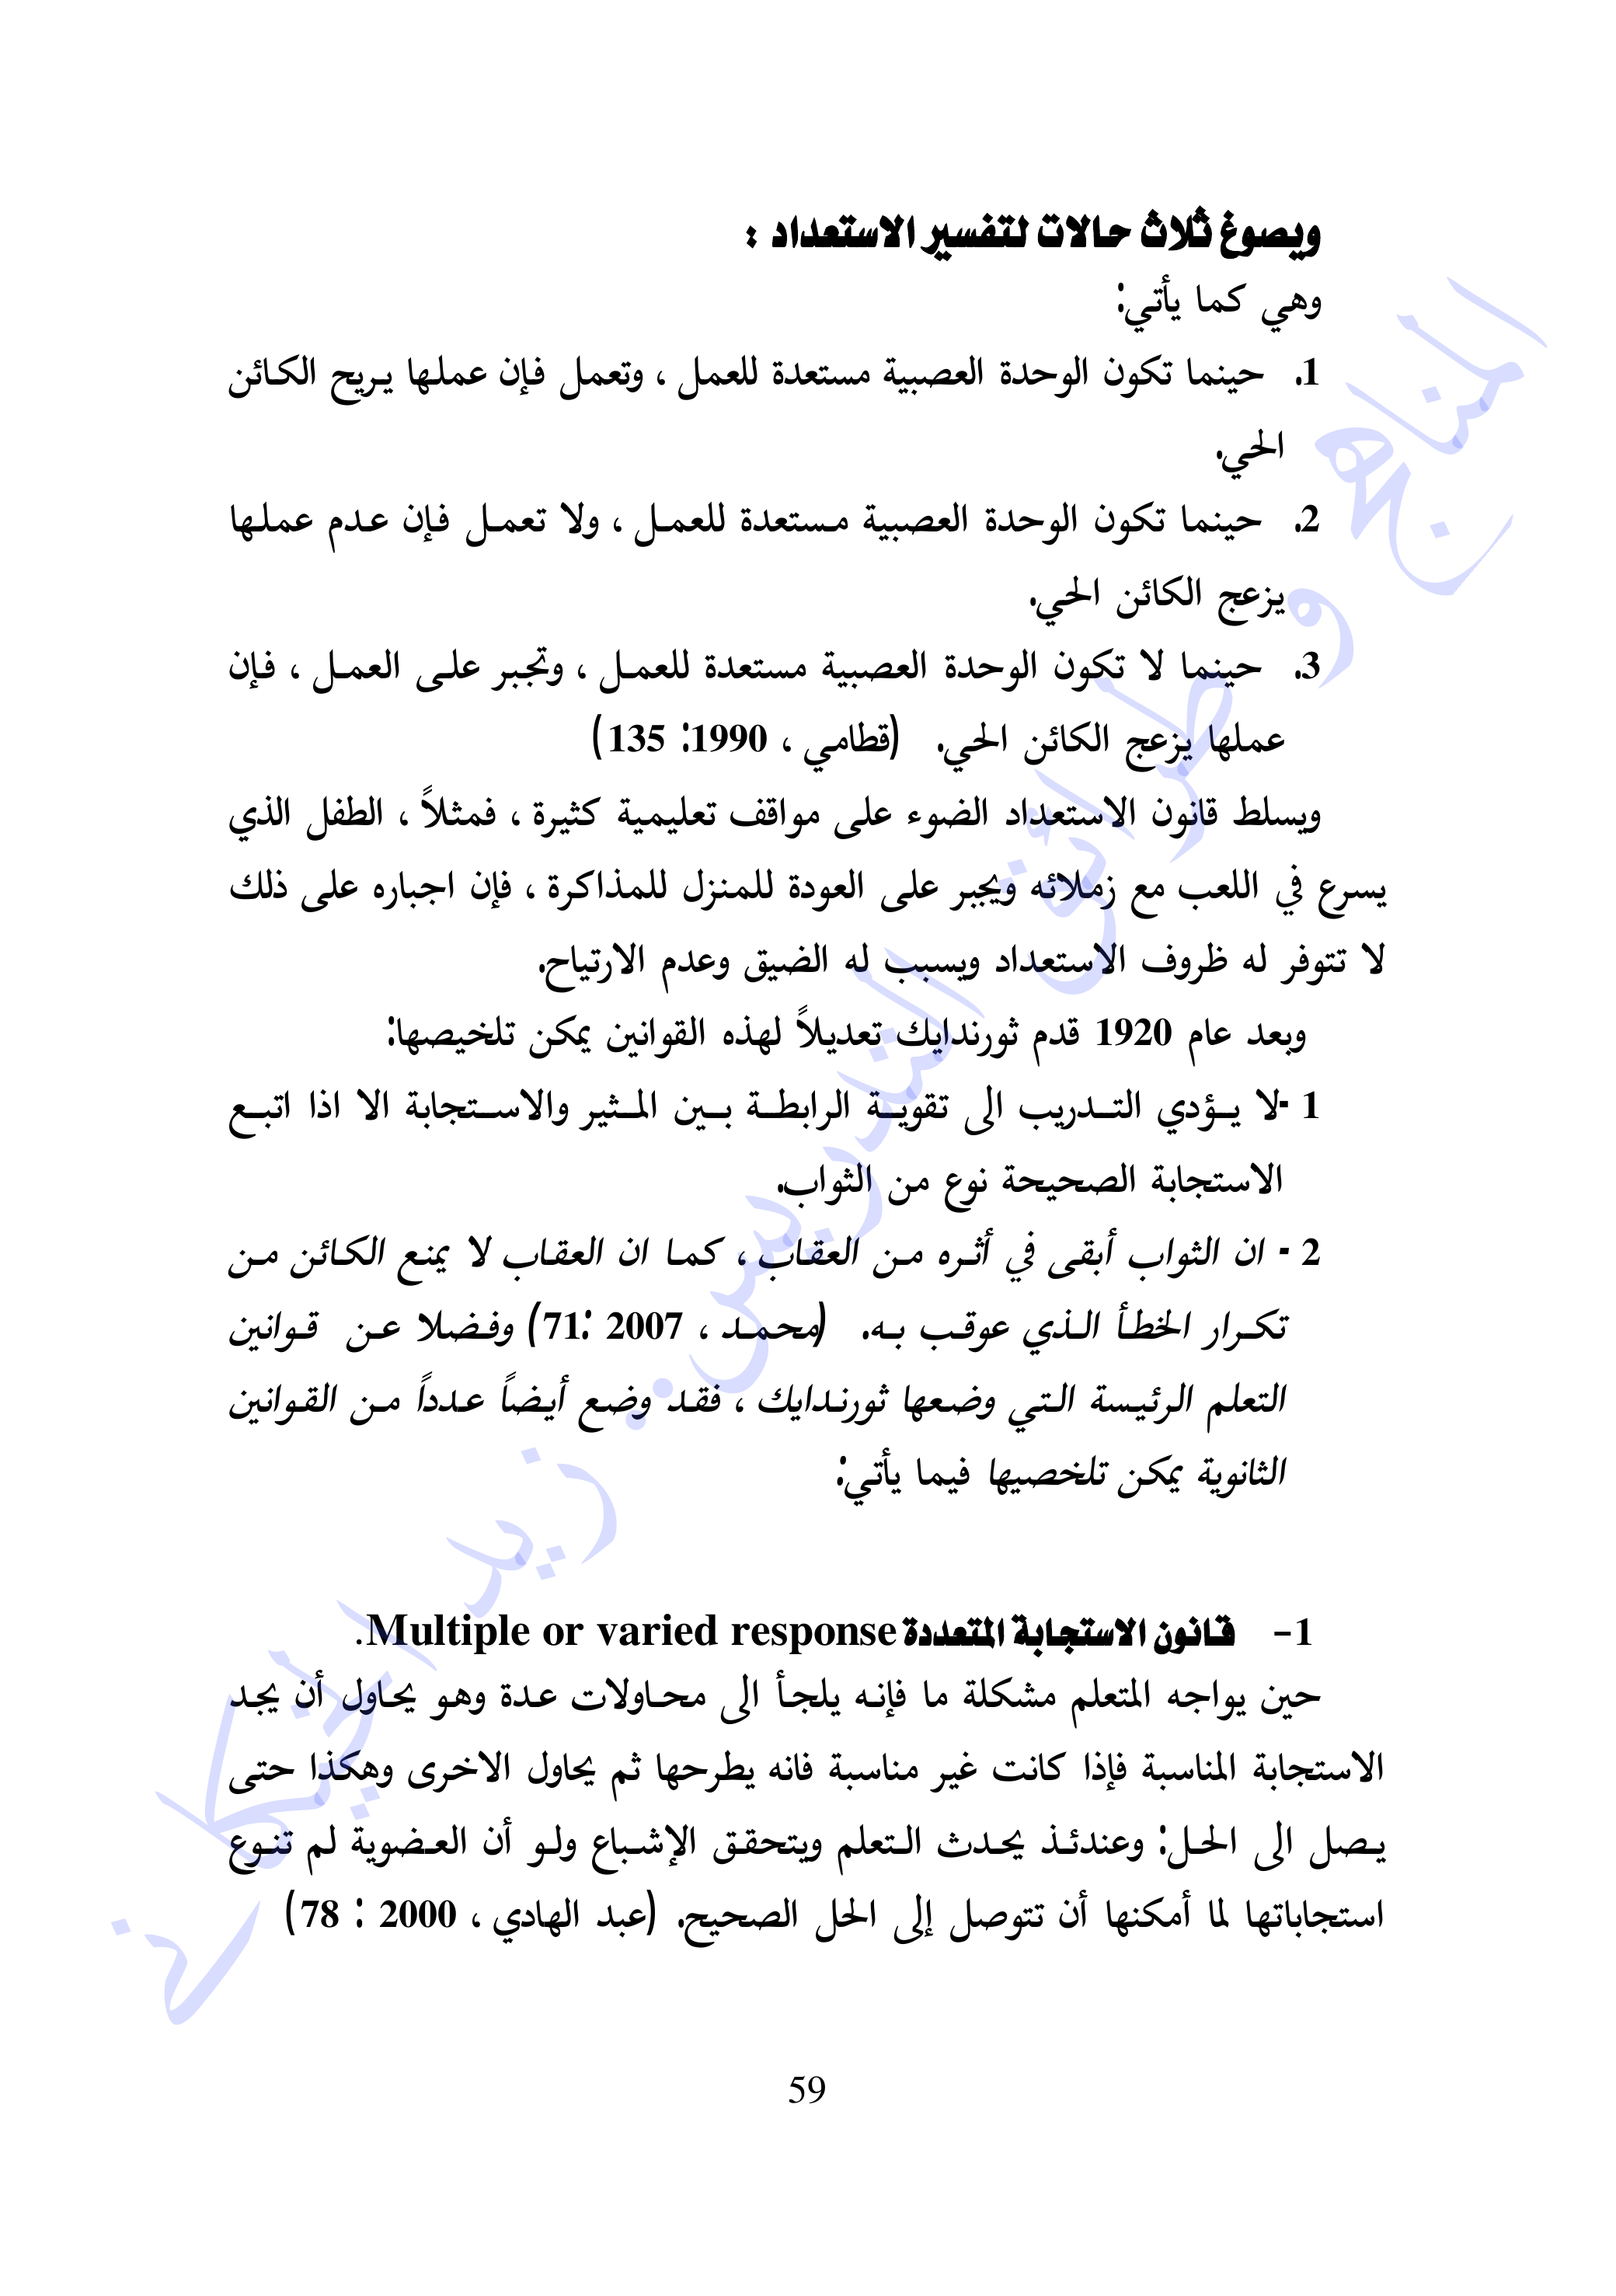 ويصوغ ثلاث حالات لتفسير الاستعداد :
وهي كما يأتي:
1. حينما تكون الوحدة العصبية مستعدة للعمل ، وتعمل فإن عملها يريح الكائن
الحي.
2. حينما تكون الوحدة العصبية مستعدة للعمل ، ولا تعمل فإن عدم عملها
يزعج الكائن الحي.
3. حينما لا تكون الوحدة العصبية مستعدة للعمل ، وتجبر على العمل ، فإن
عملها يزعج الكائن الحي. (قطامي ، 1990: 135)
ويسلط قانون الاستعداد الضوء على مواقف تعليمية كثيرة ، فمثلاً ، الطفل الذي
يسرع في اللعب مع زملائه ويجبر على العودة للمنزل للمذاكرة ، فإن اجباره على ذلك
لا تتوفر له ظروف الاستعداد ويسبب له الضيق وعدم الارتياح.
وبعد عام 1920 قدم ثورندايك تعديلاً لهذه القوانين يمكن تلخيصها:
1 -لا يؤدي التدريب الى تقوية الرابطة بين المثير والاستجابة الا اذا اتبع
الاستجابة الصحيحة نوع من الثواب.
2 - ان الثواب أبقى في أثره من العقاب ، كما ان العقاب لا يمنع الكائن من
تكرار الخطأ الذي عوقب به. (محمد ، 2007 :71) وفضلا عن قوانين
التعلم الرئيسة التي وضعها ثورندايك ، فقد وضع أيضاً عدداً من القوانين
الثانوية يمكن تلخصيها فيما يأتي:
1- قانون الاستجابة المتعددة Multiple or varied response.
حين يواجه المتعلم مشكلة ما فإنه يلجأ الى محاولات عدة وهو يحاول أن يجد
الاستجابة المناسبة فإذا كانت غير مناسبة فانه يطرحها ثم يحاول الاخرى وهكذا حتى
يصل الى الحل: وعندئذ يحدث التعلم ويتحقق الإشباع ولو أن العضوية لم تنوع
استجاباتها لما أمكنها أن تتوصل إلى الحل الصحيح. (عبد الهادي ، 2000 : 78)
59